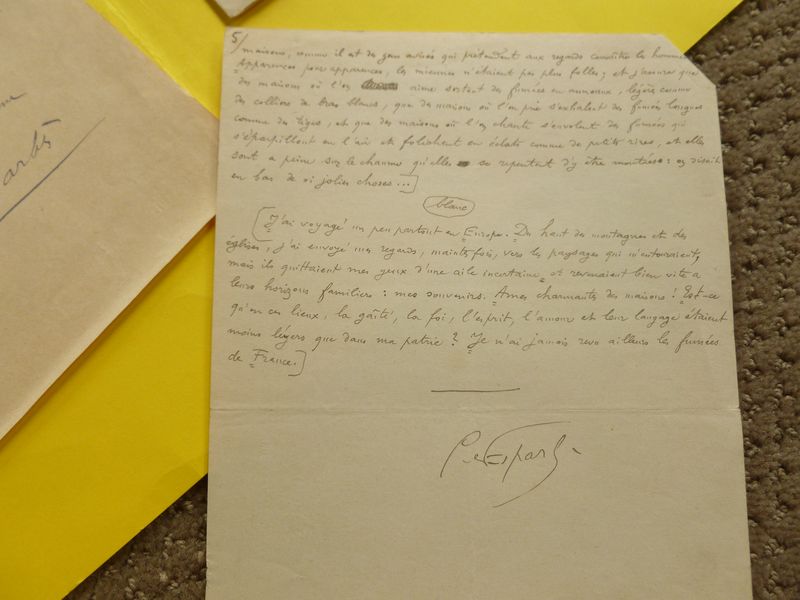 5/ maisons, comme il est des gens avisés qui prétendent aux regards connaître les hommes.
Apparences pour apparences, les miennes n'étaient pas plus folles ; et j'assure que
des maisons où l'on aime sortent des fumées en anneaux, légère comme
des colliers de bras blancs, que des maisons où l'on prie s'exhalent des fumées longues
comme des tiges, et que des maisons où l'on chante s'envolent des fumées qui
s'éparpillent en l'air et folichent en éclats comme de petits rires, et elles
sont à peine sur le chaume qu'elles se repentent d'y être montées : on disait
en bas de si jolies choses ...]
blanc
[J'ai voyagé un peu partout en Europe. Du haut des montagnes et des
églises, j'ai envoyé mes regards, maintes fois, vers les paysages qui m'entouraient,
mais ils quittaient mes yeux d'une aile incertaine et revenaient bien vite à
leurs horizons familiers : mes souvenirs. Ames charmantes des maisons ! Est-ce
qu'en ces lieux, la gaîté, la foi, l'esprit, l'amour et leur langage étaient
moins légers que dans ma patrie ? Je n'ai jamais revu ailleurs les fumées
de France.]